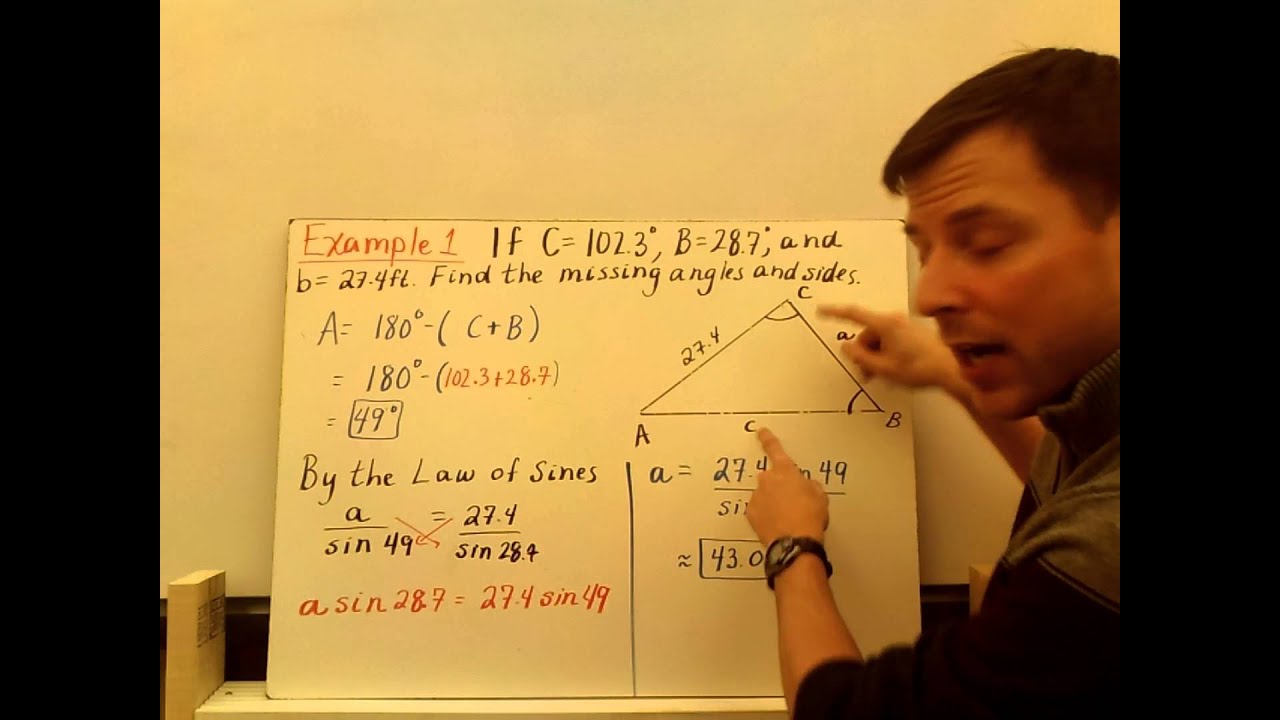 Example 1 If C= 102.3°, B=28.7°, and
b= 27.4ft. Find the missing angles and sides.
A= 180°-( C+B)
= 180°-(102.3+28.7)
= 49°
C
27.4
a
A
c
B
By the Law of Sines
a = 27.4
sin 49 sin 28.7
a sin 28.7 = 27.4 sin 49
a = 27.4 49
≈ 43.0